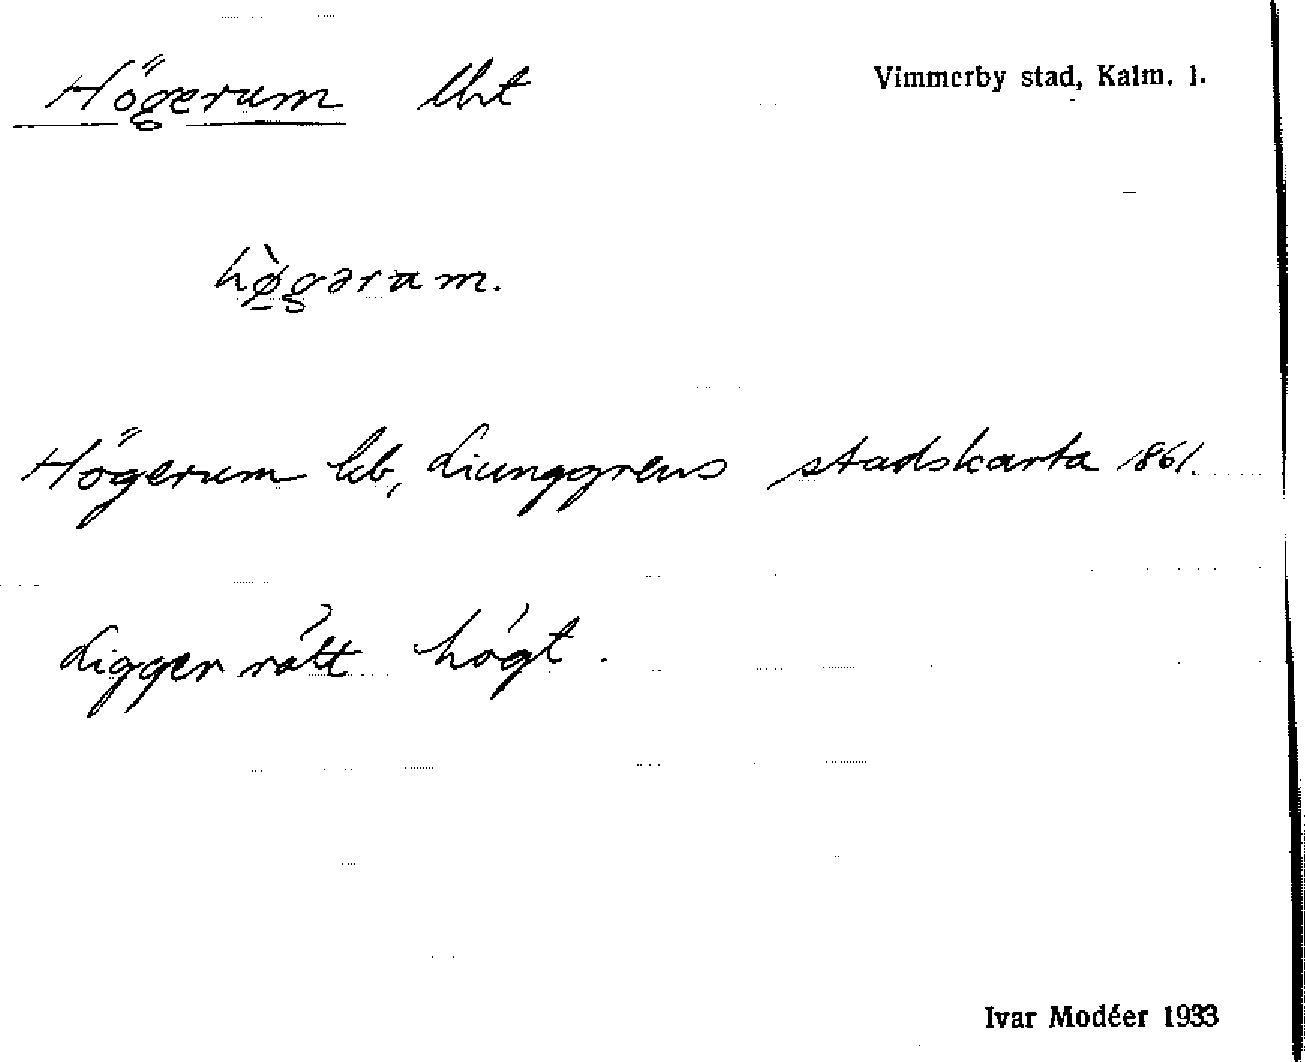 Högerum lht
Vimmerby stad, Kalm. l.
hø̀gəram.
Högerum lb, Liunggrens stadskarta 1861.
Ligger rätt högt.
Ivar Modéer 1933